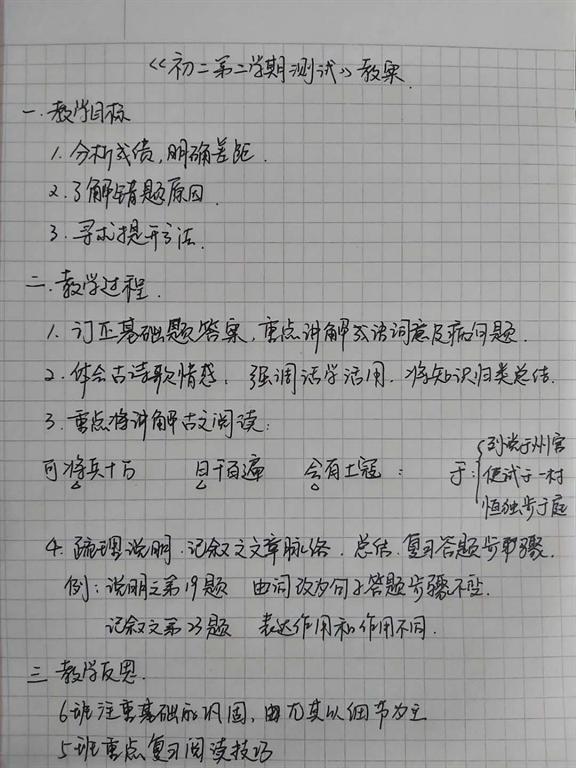 《初二第二学期测试》教案
一.教学目标
1.分析成绩,明确差距.
2.了解错题原因.
3.寻求提升方法.
二.教学过程.
1.订正基础题答案,重点讲解成语词意及病句问题.
2.体会古诗歌情感,强调活学活用.将知识归类总结.
3.重点将讲解古文阅读:
可将兵十万 日千百遍 会有土寇 : 于:
到说于州官
使试于一村
恒独步于庭
4.疏理说明.记叙文文章脉络.总结.复习答题步骤.
例:说明文第19题 由词改为句子答题步骤不变.
记叙文第23题 表达作用和作用不同.
三 教学反思.
6班注重基础的巩固,尤其以细节为主
5班重点复习阅读技巧